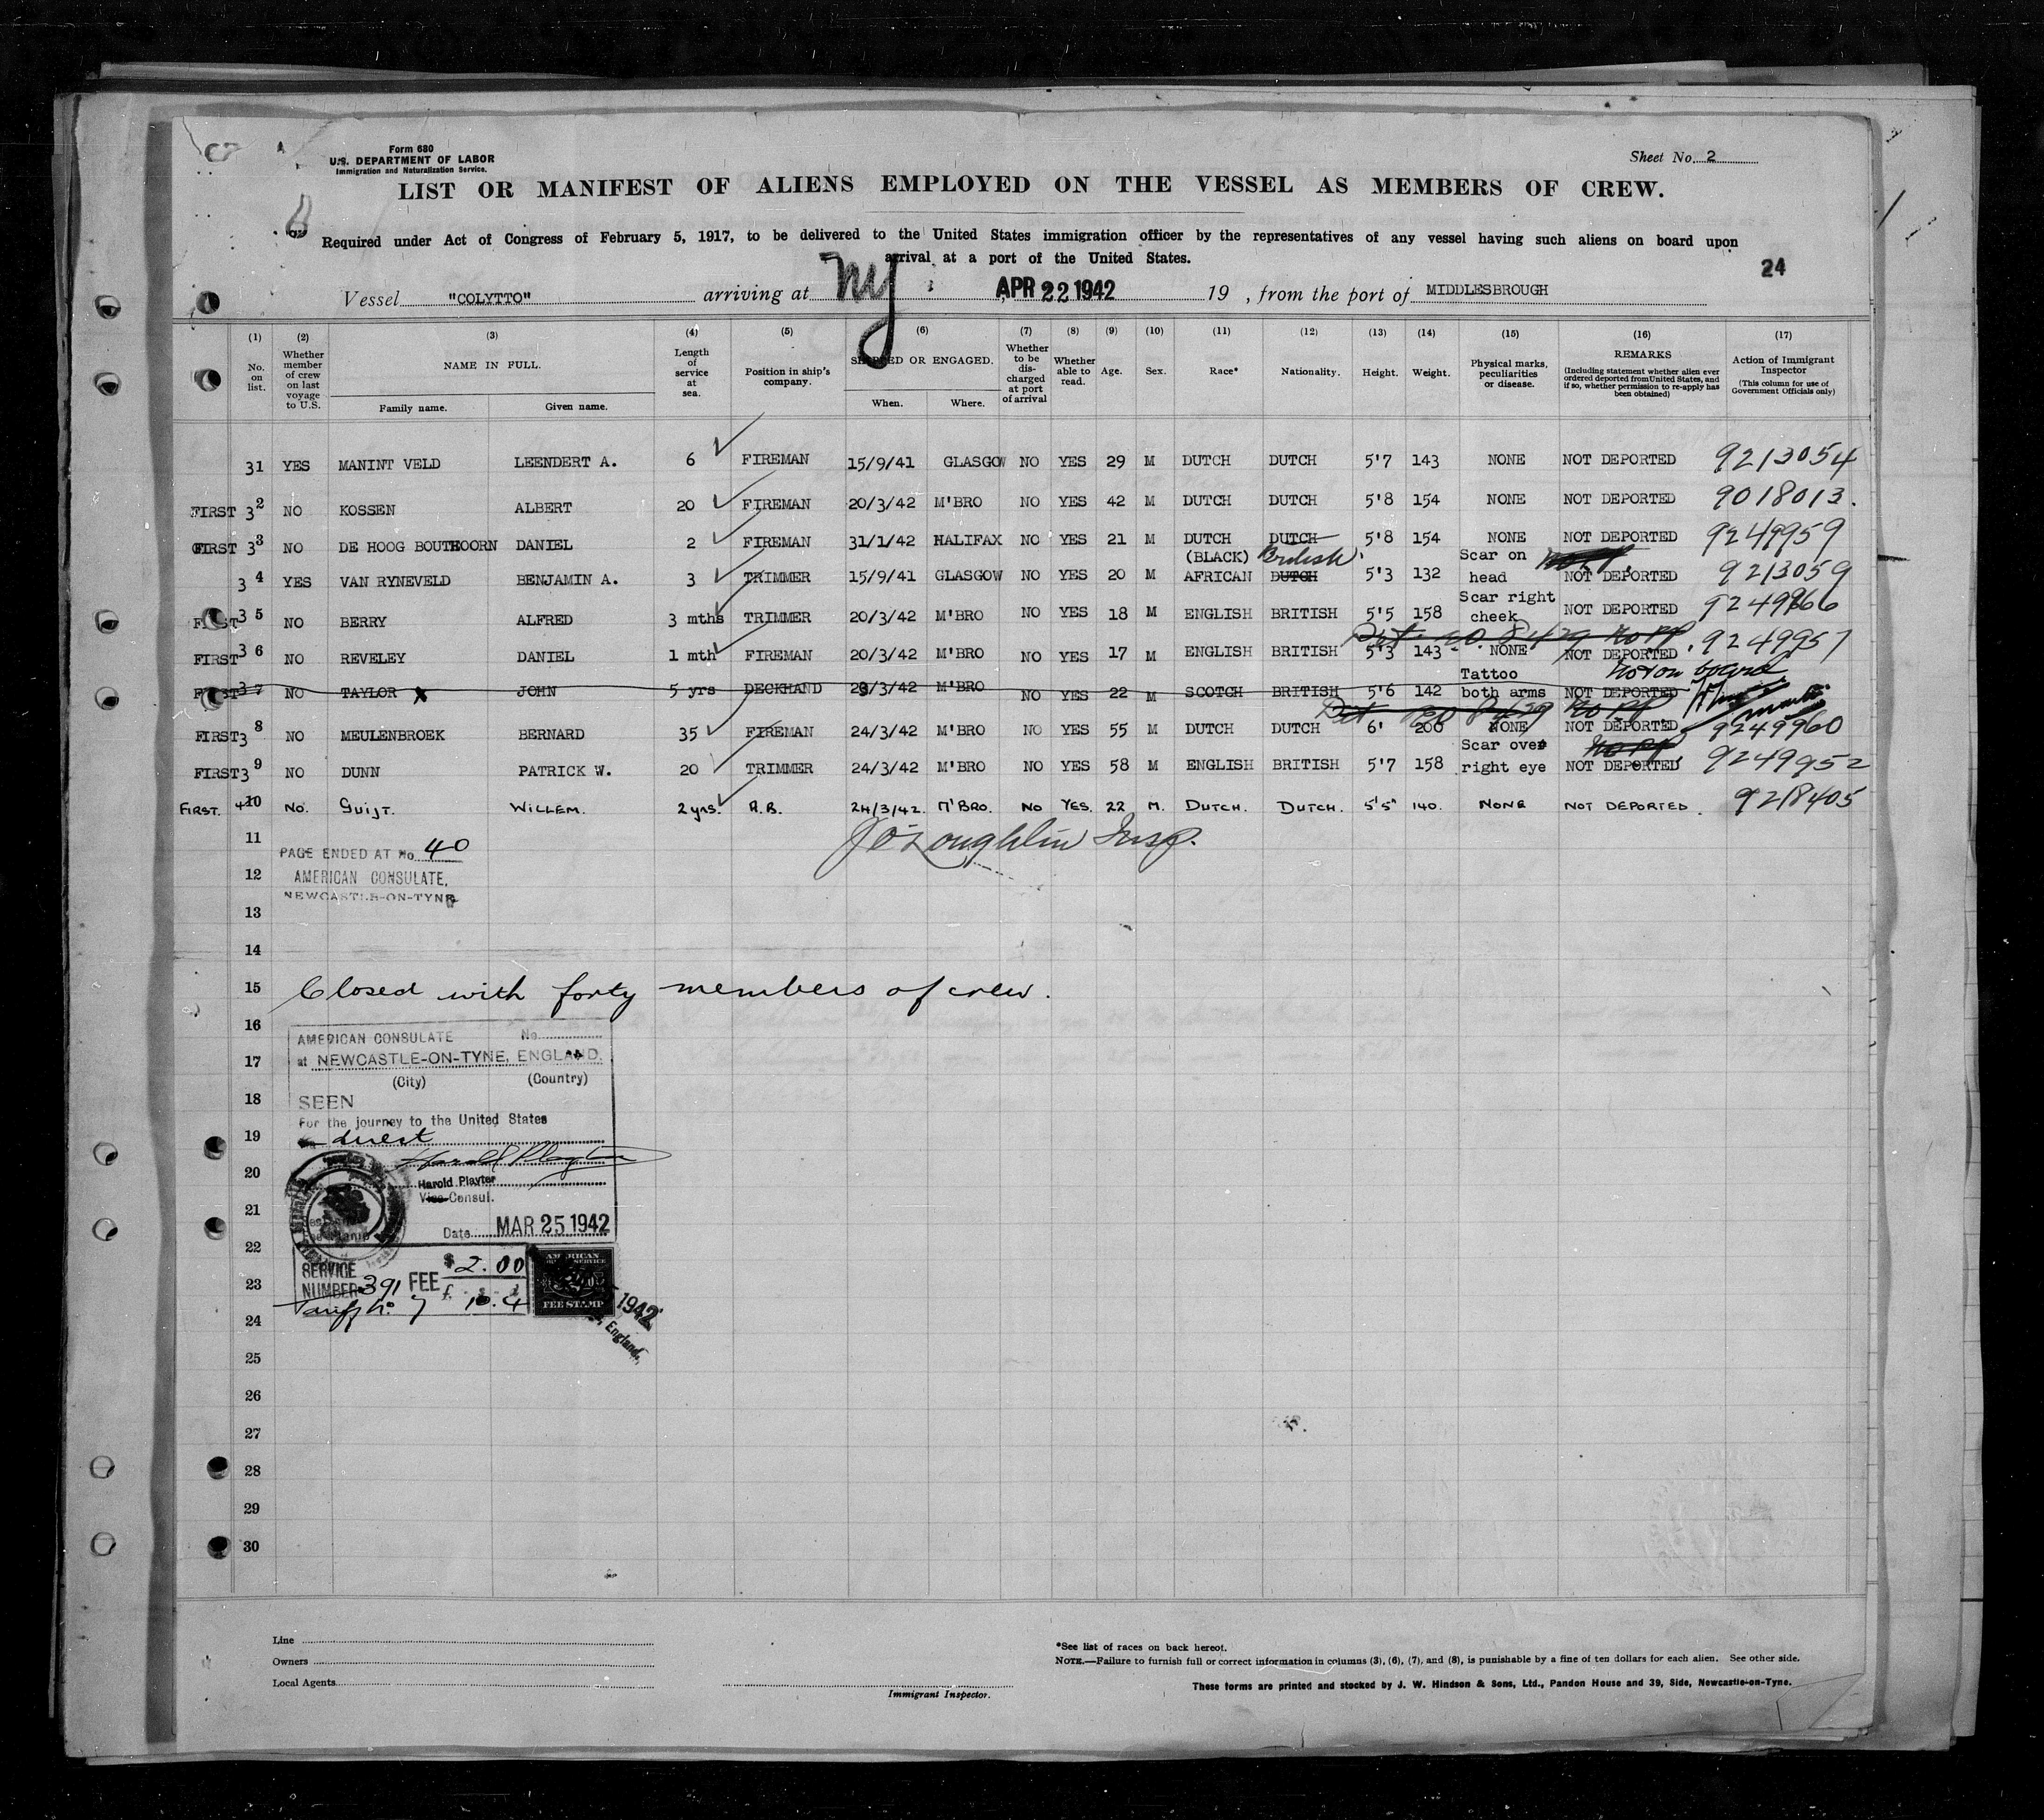 Form 680
U.S. DEPARTMENT OF LABOR
Immigration and Naturalization Service.
Sheet No. 2
LIST OR MANIFEST OF ALIENS EMPLOYED ON THE VESSEL AS MEMBERS OF CREW.
Required under Act of Congress of February 5, 1917, to be delivered to the United States immigration officer by the representatives of any vessel having such aliens on board upon
arrival at a port of the United States.
24
Vessel "COLYTTO" arriving at NY APR 22 1942 19 , from the port of MIDDLESBROUGH
(1) (2) (3) (4) (5) (6) (7) (8) (9) (10) (11) (12) (13) (14) (15) (16) (17)
No. on list. Whether member of crew on last voyage to U.S. NAME IN FULL. Length of service at sea. Position in ship's company. SHIPPED OR ENGAGED. Whether to be discharged at port of arrival Whether able to read. Age. Sex. Race* Nationality. Height. Weight. Physical marks, peculiarities or disease. REMARKS (Including statement whether alien ever ordered deported from United States, and if so, whether permission to re-apply has been obtained) Action of Immigrant Inspector (This column for use of Government Officials only)
Family name. Given name. When. Where.
31 YES MANINT VELD LEENDERT A. 6 FIREMAN 15/9/41 GLASGOW NO YES 29 M DUTCH DUTCH 5'7 143 NONE NOT DEPORTED 9213054
FIRST 32 NO KOSSEN ALBERT 20 FIREMAN 20/3/42 M'BRO NO YES 42 M DUTCH DUTCH 5'8 154 NONE NOT DEPORTED 9018013.
FIRST 33 NO DE HOOG BOUTKOORN DANIEL 2 FIREMAN 31/1/42 HALIFAX NO YES 21 M DUTCH DUTCH 5'8 154 NONE NOT DEPORTED 9249959
(BLACK) British Scar on
34 YES VAN RYNEVELD BENJAMIN A. 3 TRIMMER 15/9/41 GLASGOW NO YES 20 M AFRICAN DUTCH 5'3 132 head NOT DEPORTED 9213059
Scar right
FIRST 35 NO BERRY ALFRED 3 mths TRIMMER 20/3/42 M'BRO NO YES 18 M ENGLISH BRITISH 5'5 158 cheek NOT DEPORTED 9249966
FIRST 36 NO REVELEY DANIEL 1 mth FIREMAN 20/3/42 M'BRO NO YES 17 M ENGLISH BRITISH 5'3 143 NONE NOT DEPORTED 9249957
Tattoo Not on board
FIRST 37 NO TAYLOR x JOHN 5 yrs DECKHAND 23/3/42 M'BRO NO YES 22 M SCOTCH BRITISH 5'6 142 both arms NOT DEPORTED
FIRST 38 NO MEULENBROEK BERNARD 35 FIREMAN 24/3/42 M'BRO NO YES 55 M DUTCH DUTCH 6' 200 NONE NOT DEPORTED 9249960
Scar over
FIRST 39 NO DUNN PATRICK W. 20 TRIMMER 24/3/42 M'BRO NO YES 58 M ENGLISH BRITISH 5'7 158 right eye NOT DEPORTED 9249952
FIRST. 40 No. Guijt. WILLEM. 2 yrs. A.B. 24/3/42. M'BRO. No YES. 22 M. DUTCH. DUTCH. 5'5" 140. NONE NOT DEPORTED. 9218405
J O'Loughlin Insp.
11
PAGE ENDED AT No. 40
12
AMERICAN CONSULATE,
NEWCASTLE-ON-TYNE
13
14
15 Closed with forty members of crew.
16
AMERICAN CONSULATE No.
17 at NEWCASTLE-ON-TYNE, ENGLAND.
(City) (Country)
18 SEEN
For the journey to the United States
19 direct
20 Harold Playter
Harold Playter
Vice Consul.
21
Date MAR 25 1942
22
SERVICE NUMBER 391 FEE $2.00
23
Tariff No. 7 10.4
AMERICAN SERVICE FEE STAMP
1942
England.
24
25
26
27
28
29
30
Line
Owners
Local Agents
Immigrant Inspector.
*See list of races on back hereof.
NOTE.—Failure to furnish full or correct information in columns (3), (6), (7), and (8), is punishable by a fine of ten dollars for each alien. See other side.
These forms are printed and stocked by J. W. Hindson & Sons, Ltd., Pandon House and 39, Side, Newcastle-on-Tyne.